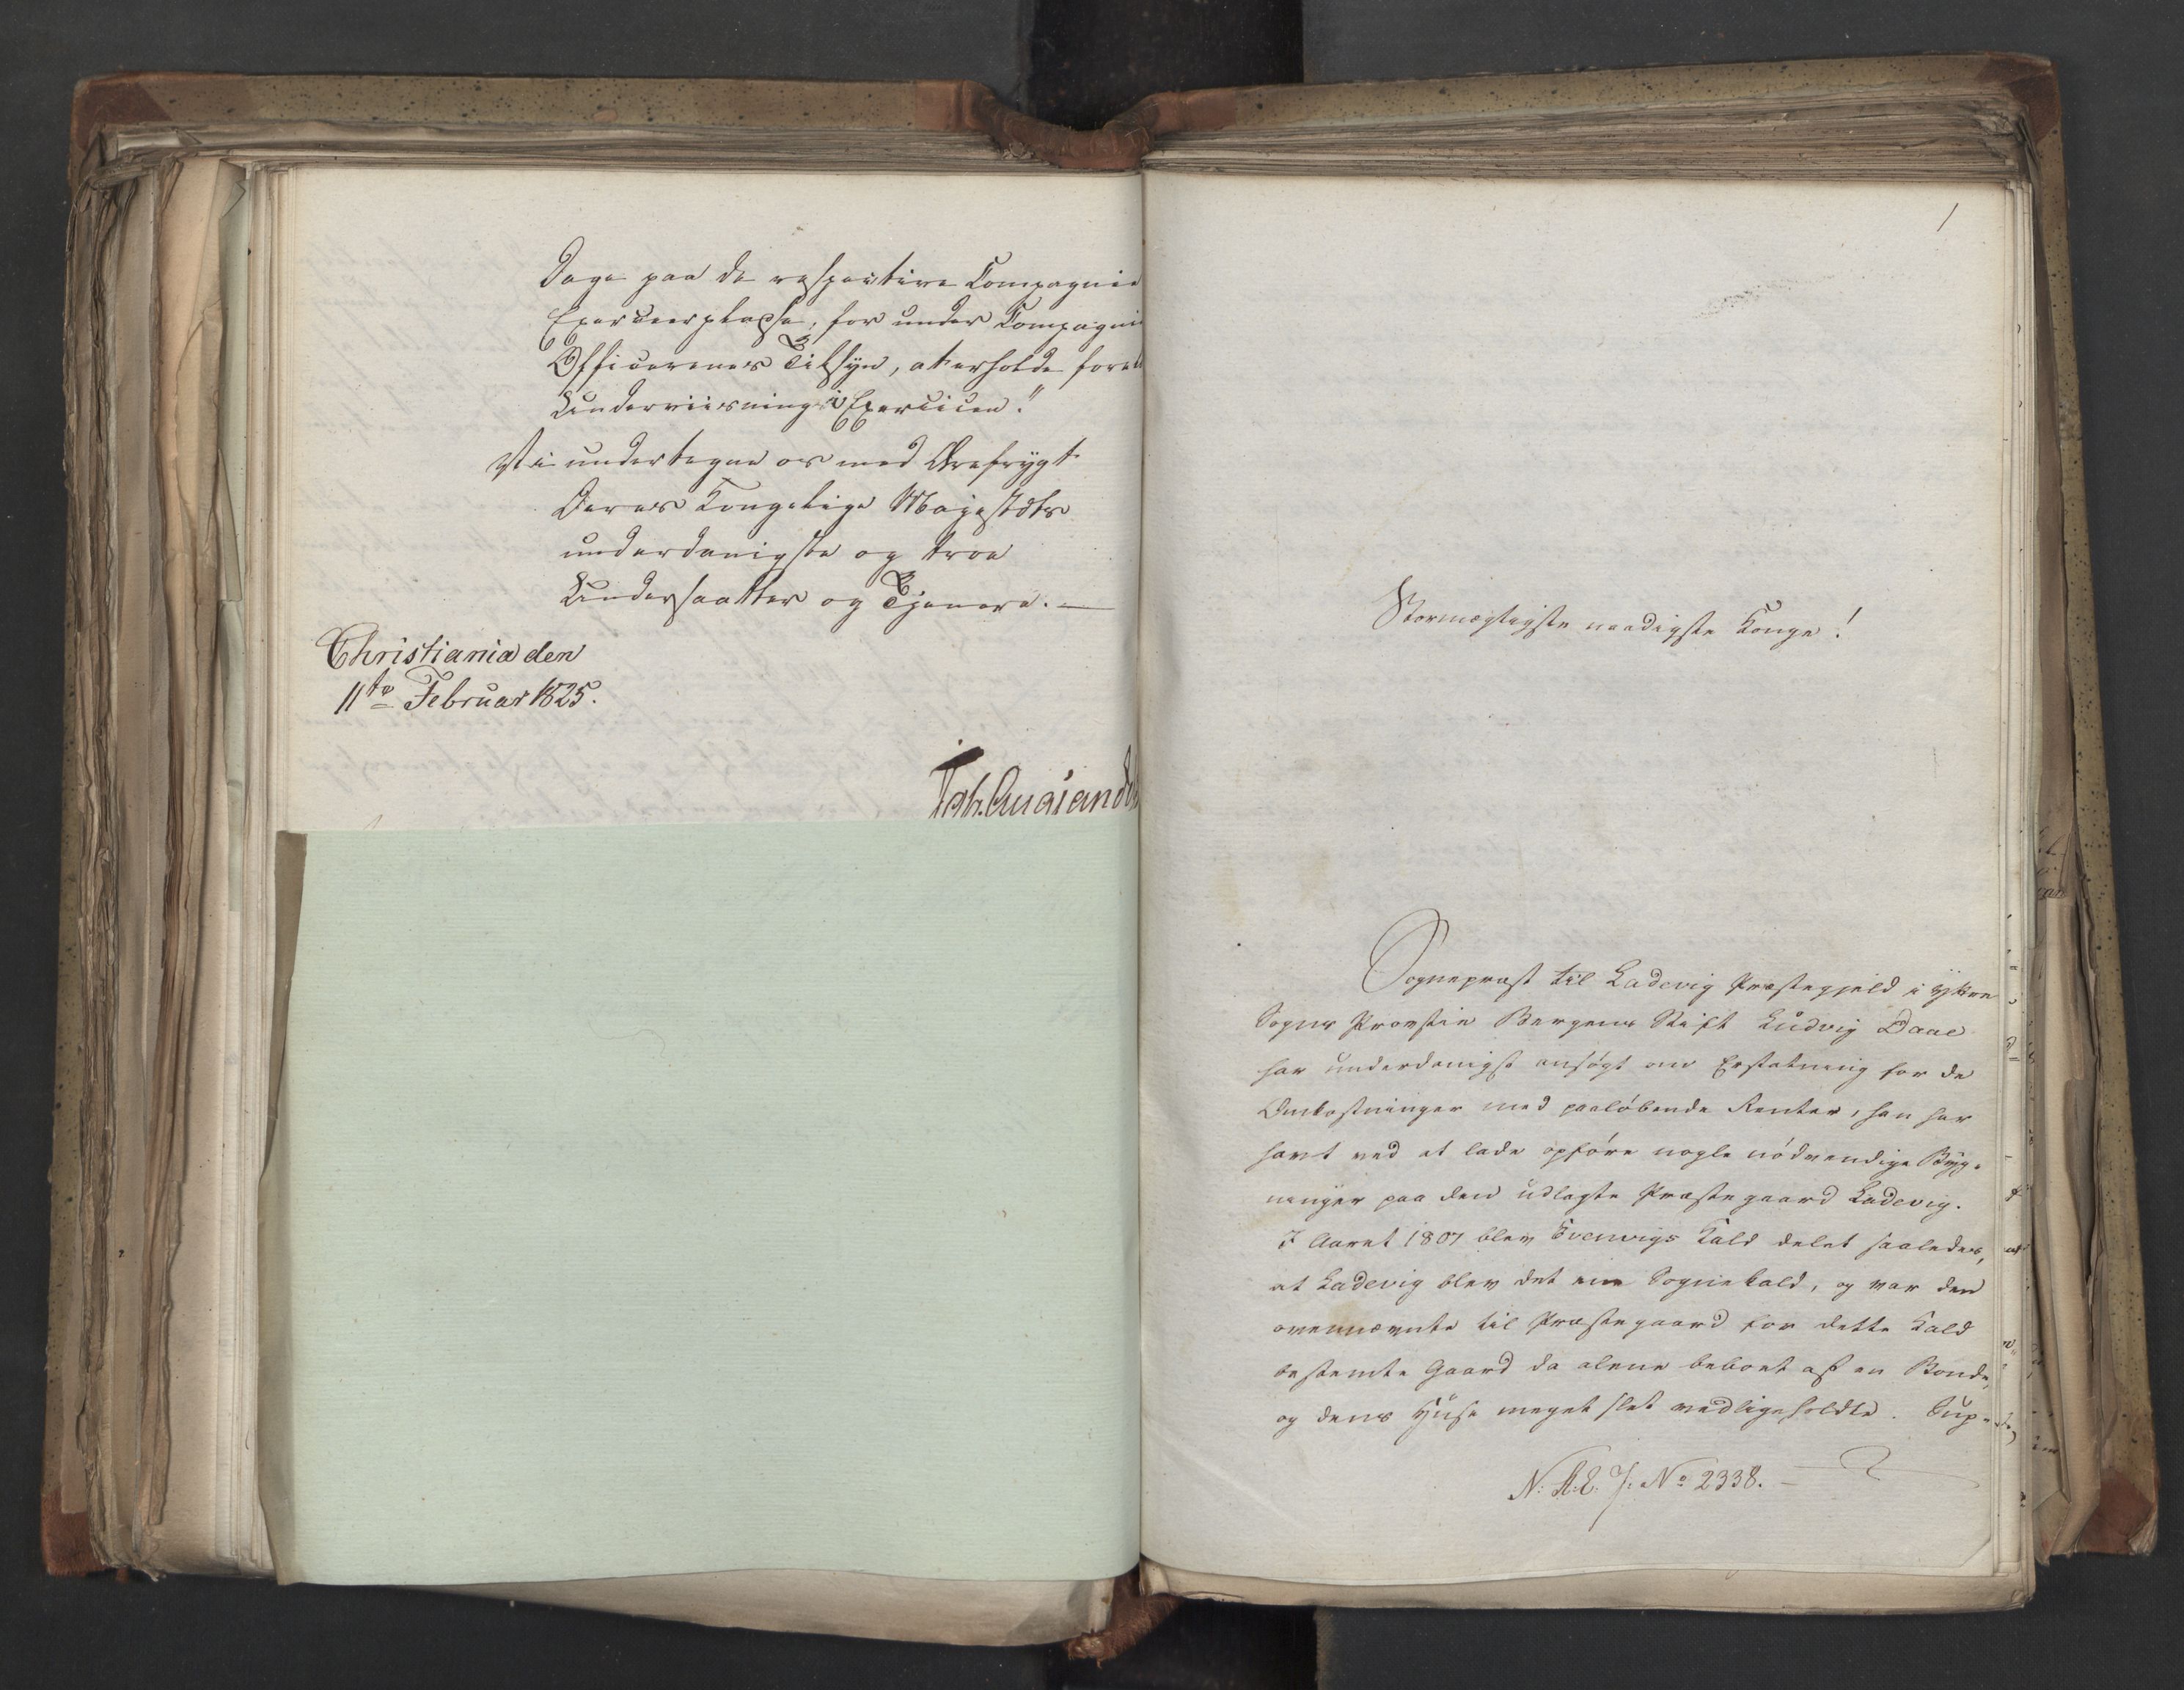 Dage paa de respective Compagnie
Exerceerpladse, for under Compagnie
Officerernes Tilsyn, at erholde
Underviisning i Exercicen."
Vi undertegne os med Ærefrygt
Deres Kongelige Majestæts
underdanigste og troe
Undersaatter og Tjenere. —
Christiania den
11te Februar 1825.
1
Stormægtigste naadigste Konge!
Sognepræst til Ladevig Præstegjeld i Yttre
Sogns Provstie Bergens Stift Ludvig Daae
har underdanigst ansøgt om Erstatning for de
Omkostninger med paaløbende Renter, han har
havt ved at lade opføre nogle nødvendige Byg-
ninger paa den udlagte Præstegaard Ladevig.
I Aaret 1807 blev Evenvigs Kald delet saaledes,
at Ladevig blev det ene Sognekald, og var den
ovennævnte til Præstegaard for dette Kald
bestemte Gaard da alene beboet af en Bonde,
og dens Huse meget slet vedligeholdte. Sup-
N: A. E. J: No 2338. —